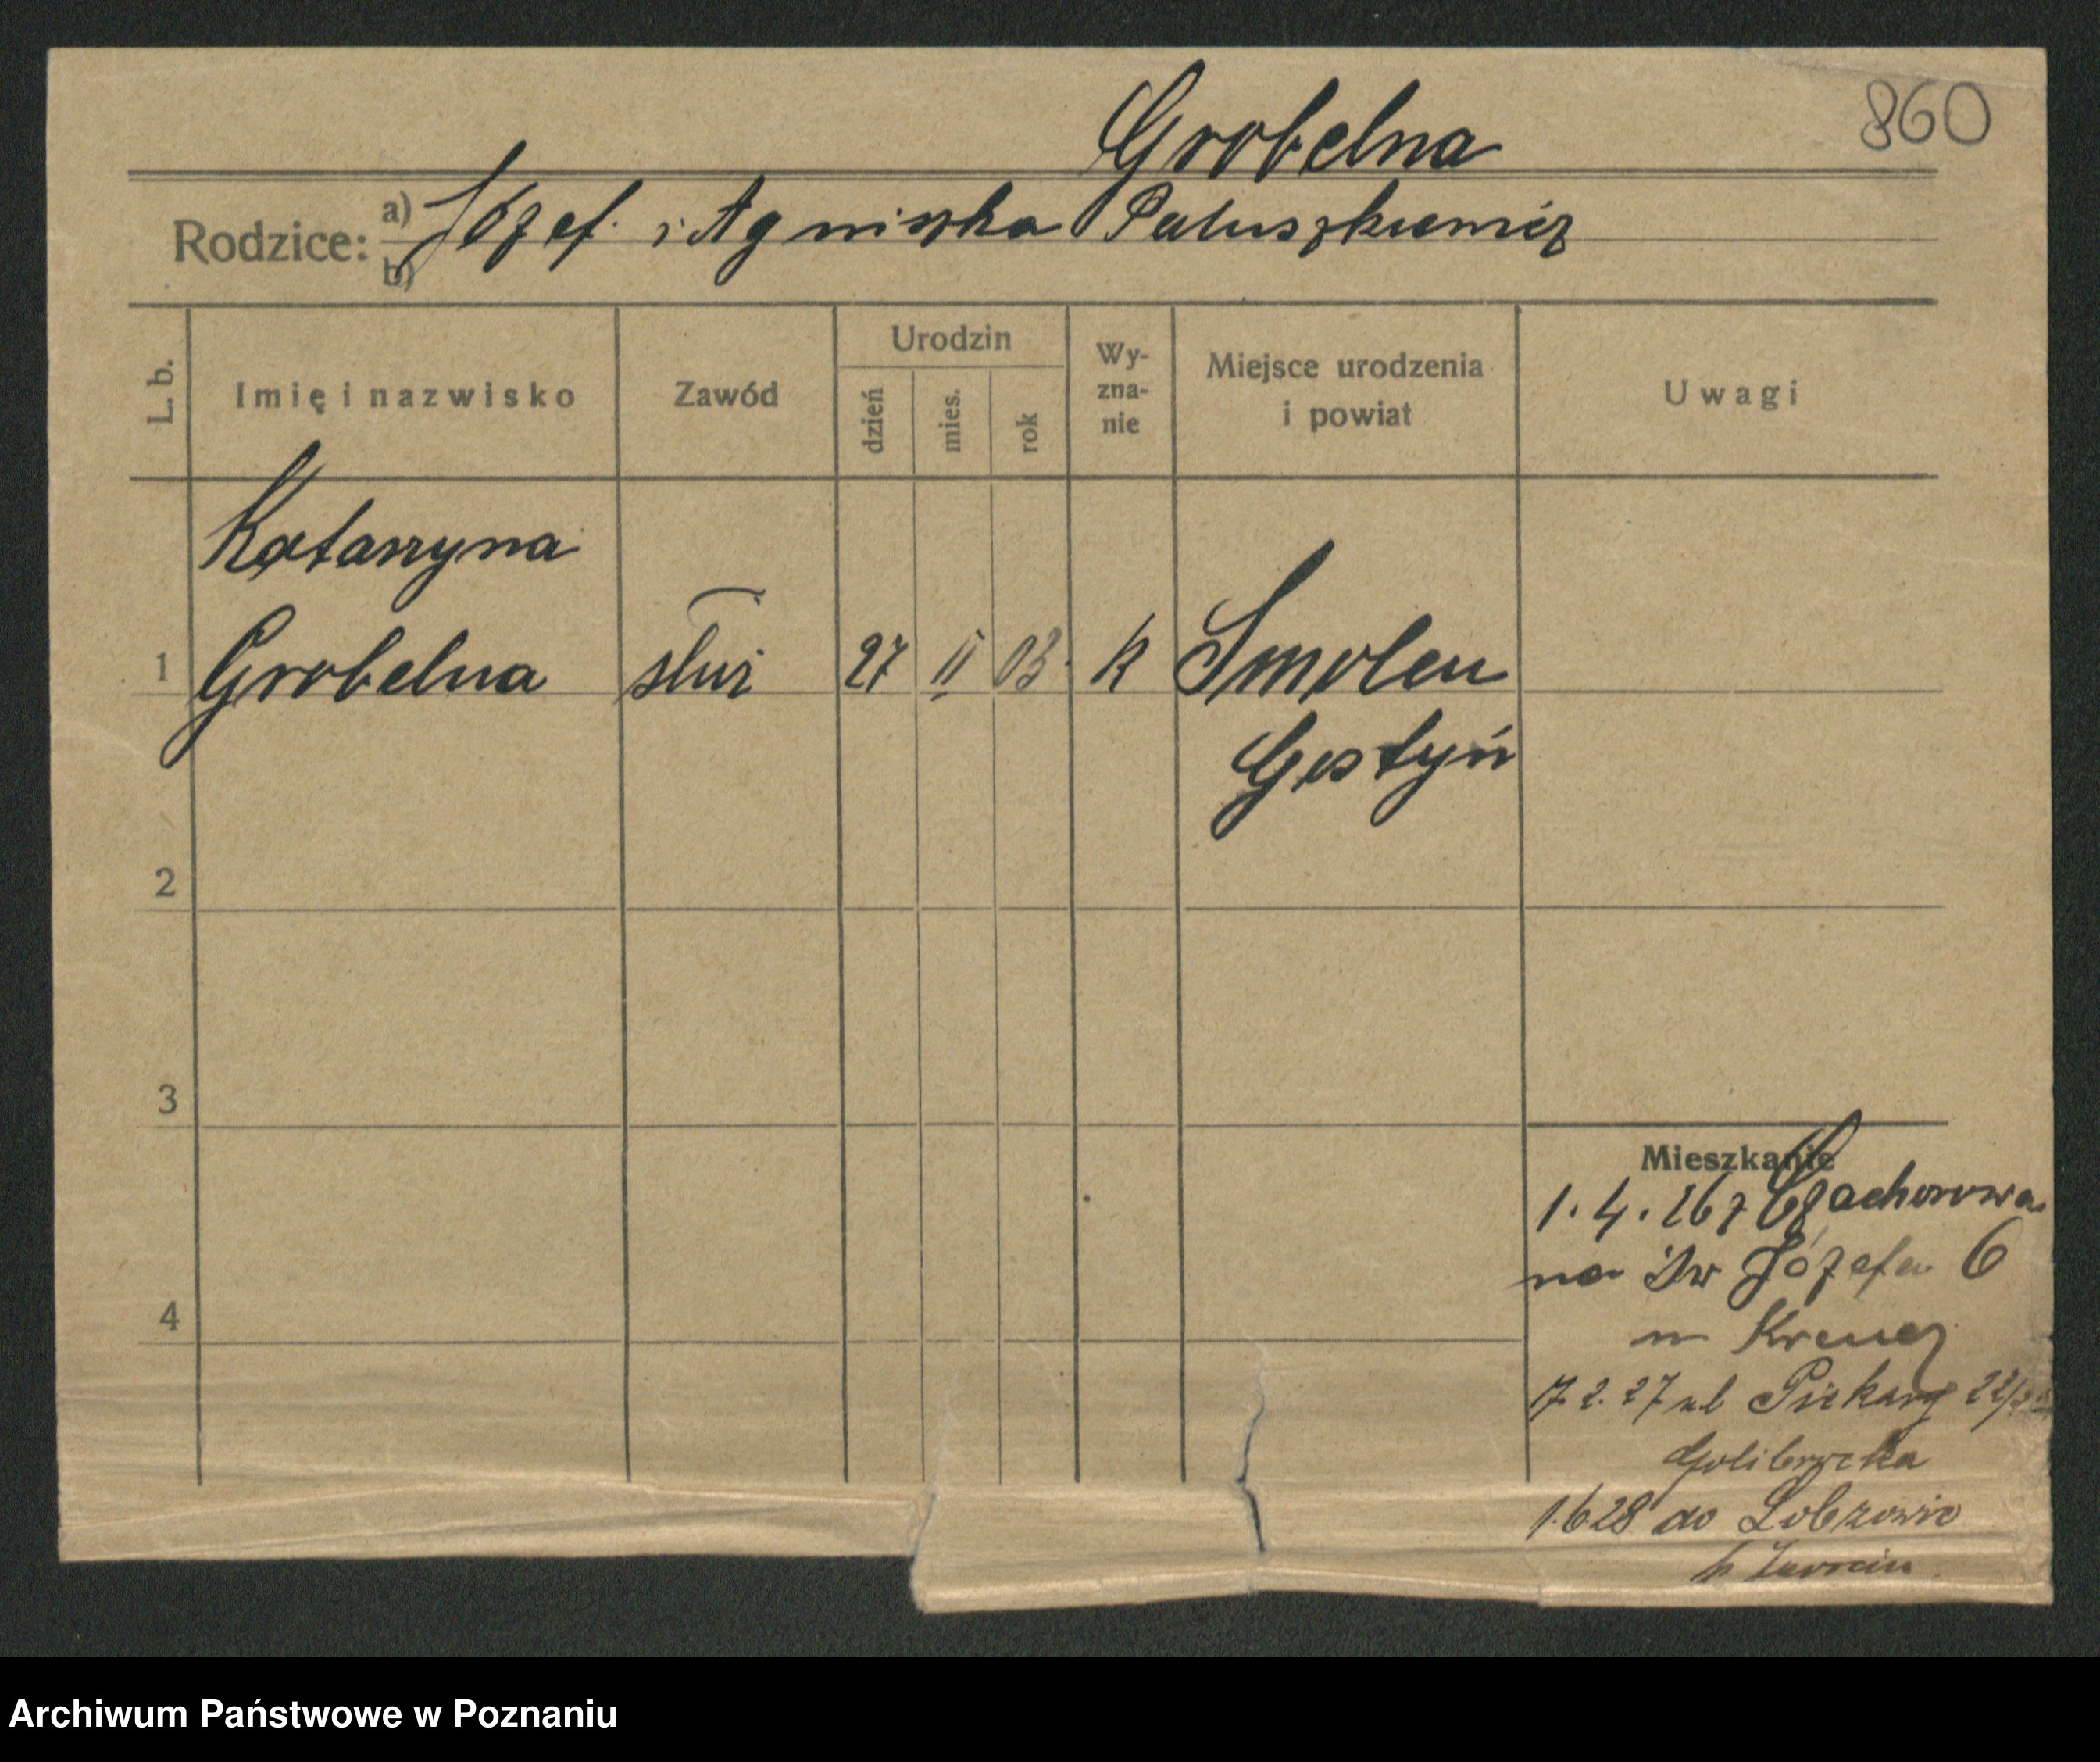 860
Grobelna
Rodzice: a) Józef i Agniszka Paluszkiewicz
b)
L. b. Imię i nazwisko Zawód Urodzin dzień mies. rok Wy-zna-nie Miejsce urodzenia i powiat Uwagi
Katarzyna
1 Grobelna służ 27 II 03. k Smolen
Gostyń
2
3
Mieszkanie
1.4.26 z Czachorowa
na Św Józefa 6
4
17.2.27 ul Piekary 22/23
1.6.28 do
Archiwum Państwowe w Poznaniu